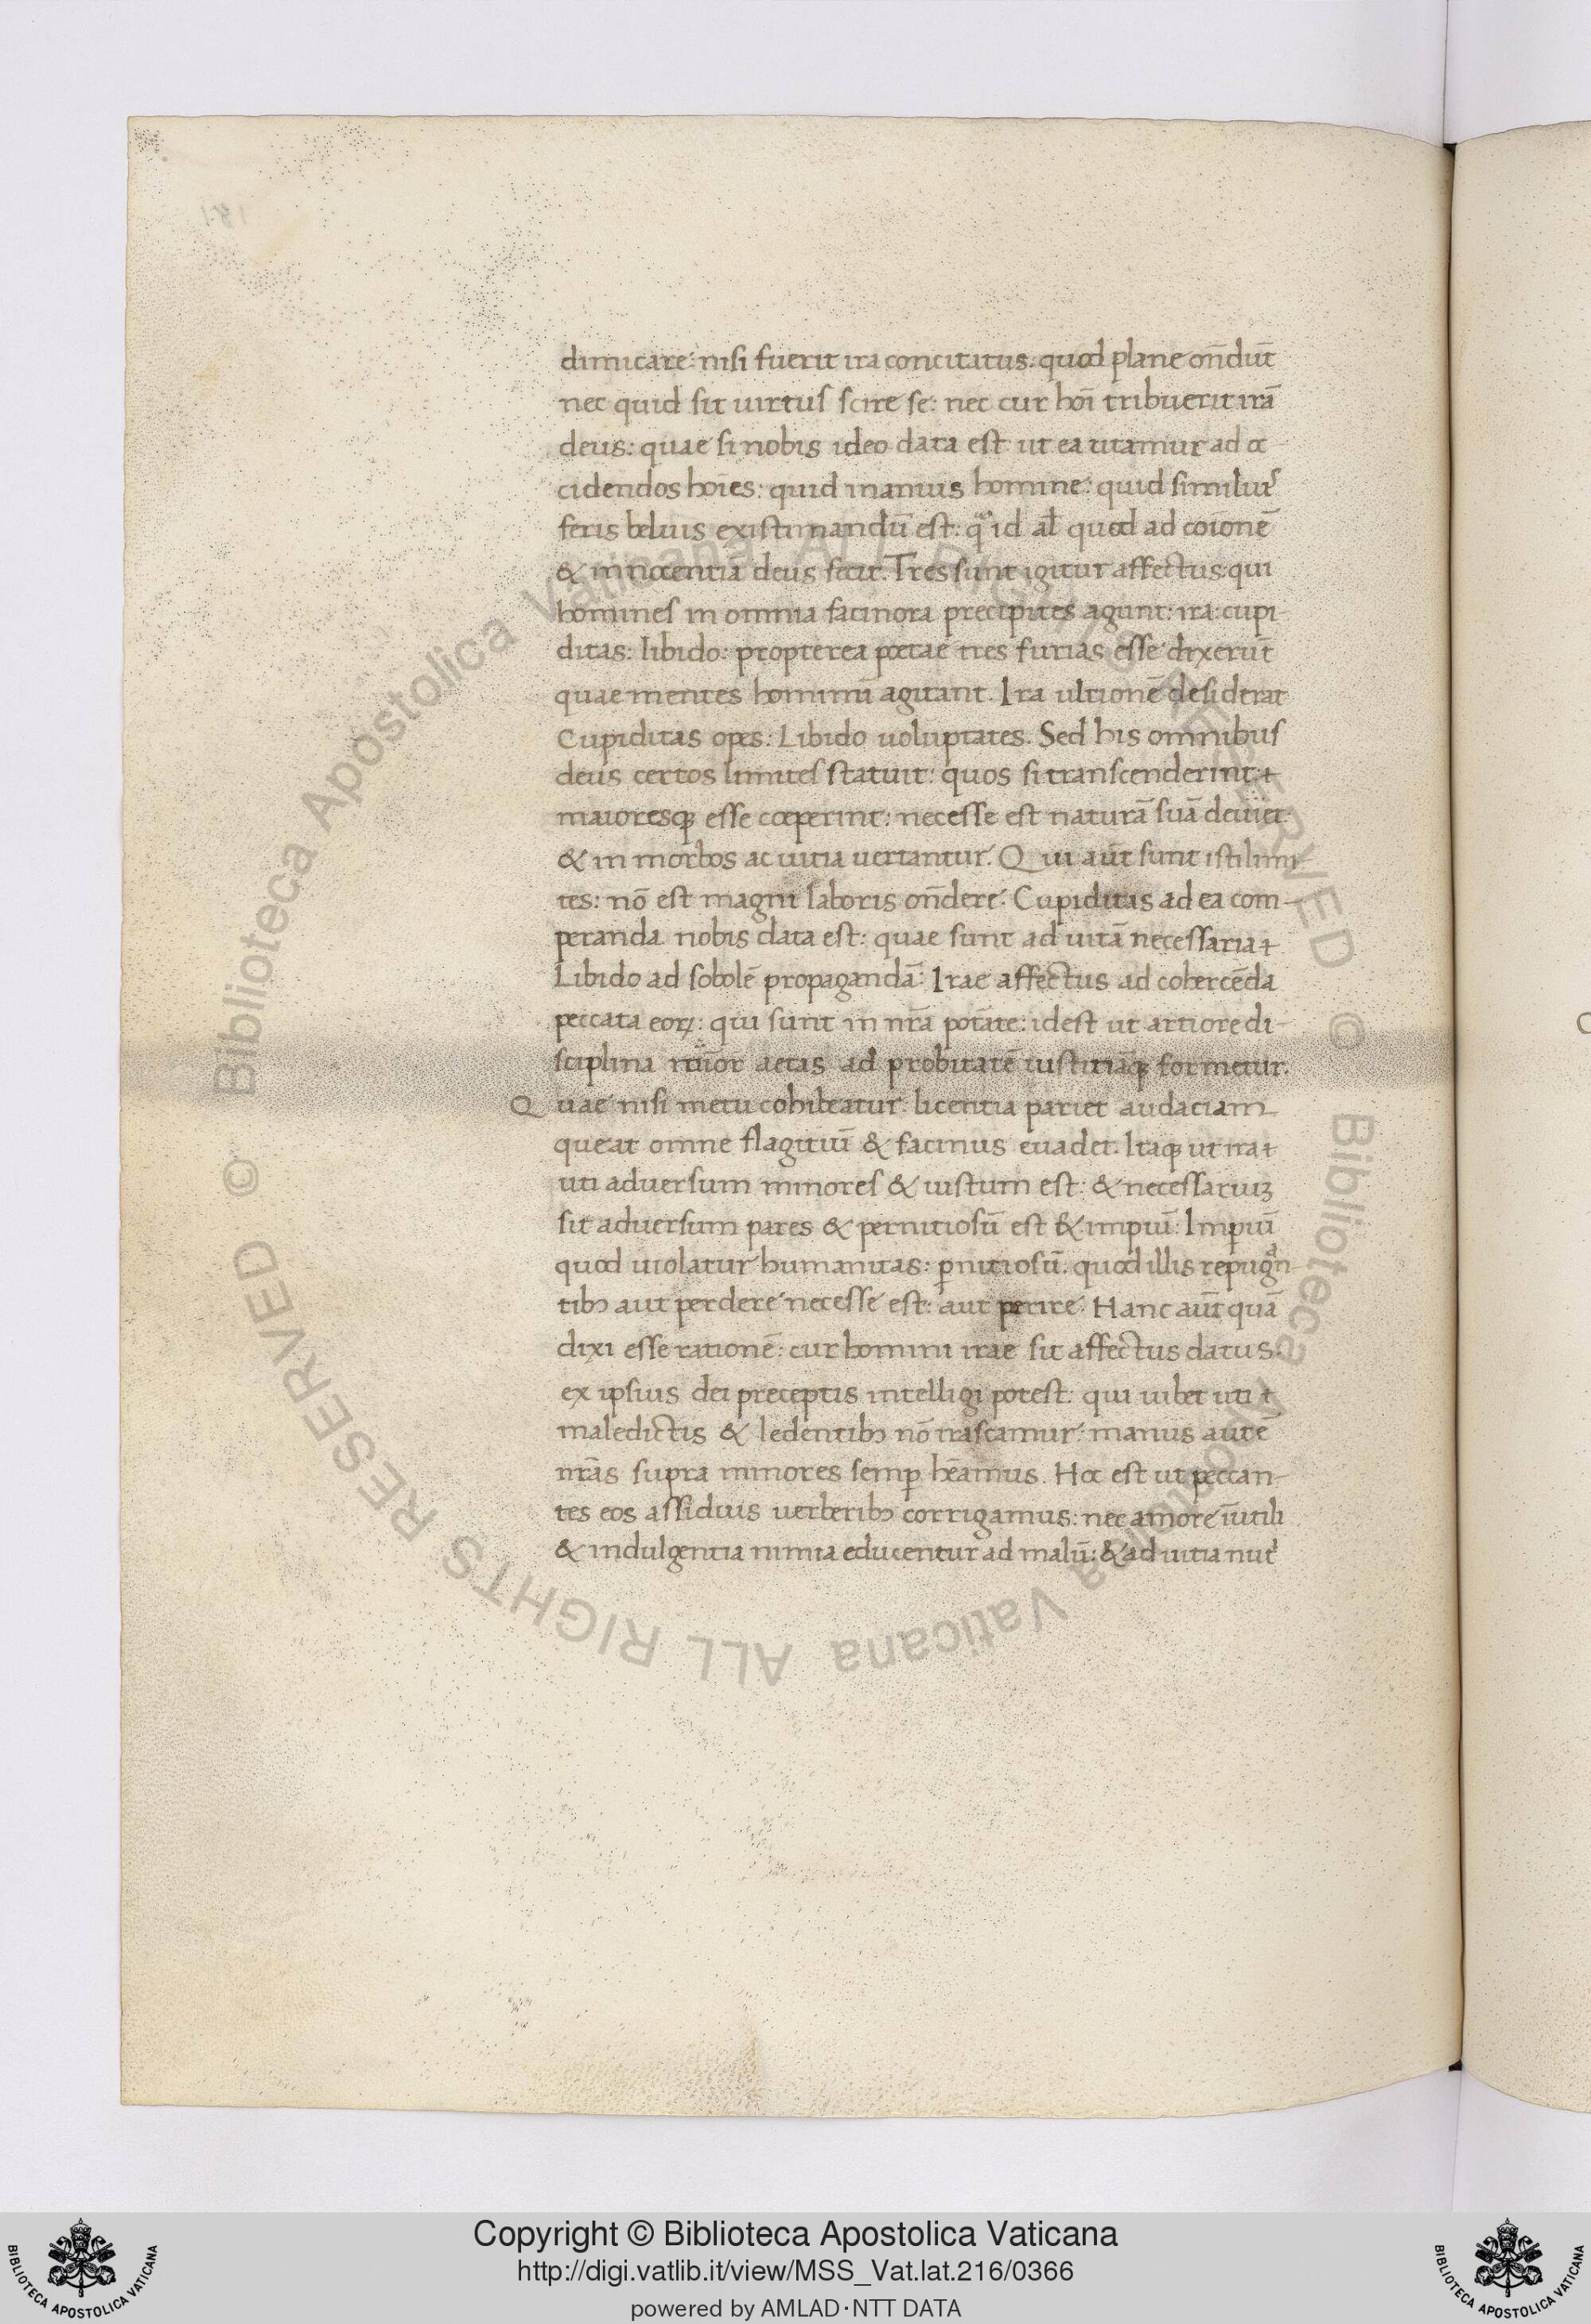 dimicare: nisi fuerit ira concitatus: quod plane on̄dūt
nec quid sit uirtus scire se: nec cur hōi tribuerit irā
deus: quae si nobis ideo data est ut ea utamur ad oc
cidendos hoīes: quid inanius homine: quid similius
feris beluis existimandū est: id quod ad coīonē
& innocentiā deus fecit. Tres sunt igitur affectus: qui
homines in omnia facinora precipites agunt: ira: cupi-
ditas: libido: propterea poetae tres furias esse dixerūt
quae mentes hominū agitant. Ira ultionē desiderat
Cupiditas opes: Libido uoluptates. Sed his omnibus
deus certos limites statuit: quos si transcenderint:
maioresq; esse coeperint: necesse est naturā suā
& in morbos ac uitia uertantur. Qui aūt sunt isti limi-
tes: nō est magni laboris on̄dere. Cupiditas ad ea com-
peranda nobis data est: quae sunt ad uitā necessaria
Libido ad sobolē propagandā: Irae affectus ad cohercēda
peccata eoꝝ: qui sunt in nr̄a potāte: idest ut artiore di-
sciplina aetas ad probitatē iustitiāq; formetur.
Quae nisi metu cohibeatur: licentia pariet audaciam
queat omne flagitiū & facinus euadet. Itaq; ut ira
uti aduersum minores & iustum est: & necessariuꝫ
sit aduersum pares & pernitiosū est & impiū: Impiū
quod uiolatur humanitas: ꝑnitiosū: quod illis repugn-
tibꝫ aut perdere necesse est: aut perire. Hanc aūt quā
dixi esse rationē: cur homini irae sit affectus datus:
ex ipsius dei preceptis intelligi potest: qui iubet uti
maledictis & ledentibꝫ nō irascamur: manus autē
nr̄as supra minores semꝑ hēamus. Hoc est ut peccan-
tes eos assiduis uerberibꝫ corrigamus: nec amore īutili
& indulgentia nimia educentur ad malū: & ad uitia
Copyright © Biblioteca Apostolica Vaticana
http://digi.vatlib.it/view/MSS_Vat.lat.216/0366
powered by AMLAD·NTT DATA
BIBLIOTECA APOSTOLICA VATICANA
BIBLIOTECA APOSTOLICA VATICANA
© Biblioteca Apostolica Vaticana ALL RIGHTS RESERVED
© Biblioteca Apostolica Vaticana ALL RIGHTS RESERVED